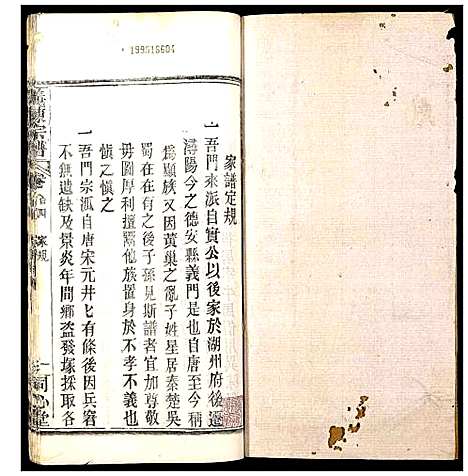 199515604
家譜定規
一吾門來派自實公以後家於湖州府後遷
潯陽今之德安縣義門是也自唐至今稱
為顯族又因黃巢之亂子姓星居秦楚吳
蜀在在有之後子孫見斯譜者宜加尊敬
毋圖厚利擅陷他族置身於不孝不義也
慎之慎之
一吾門宗派自唐宋元井匕有條後因兵容
不無遺缺及景炎年間鄉盜發塚採取各
宗譜
卷
家規